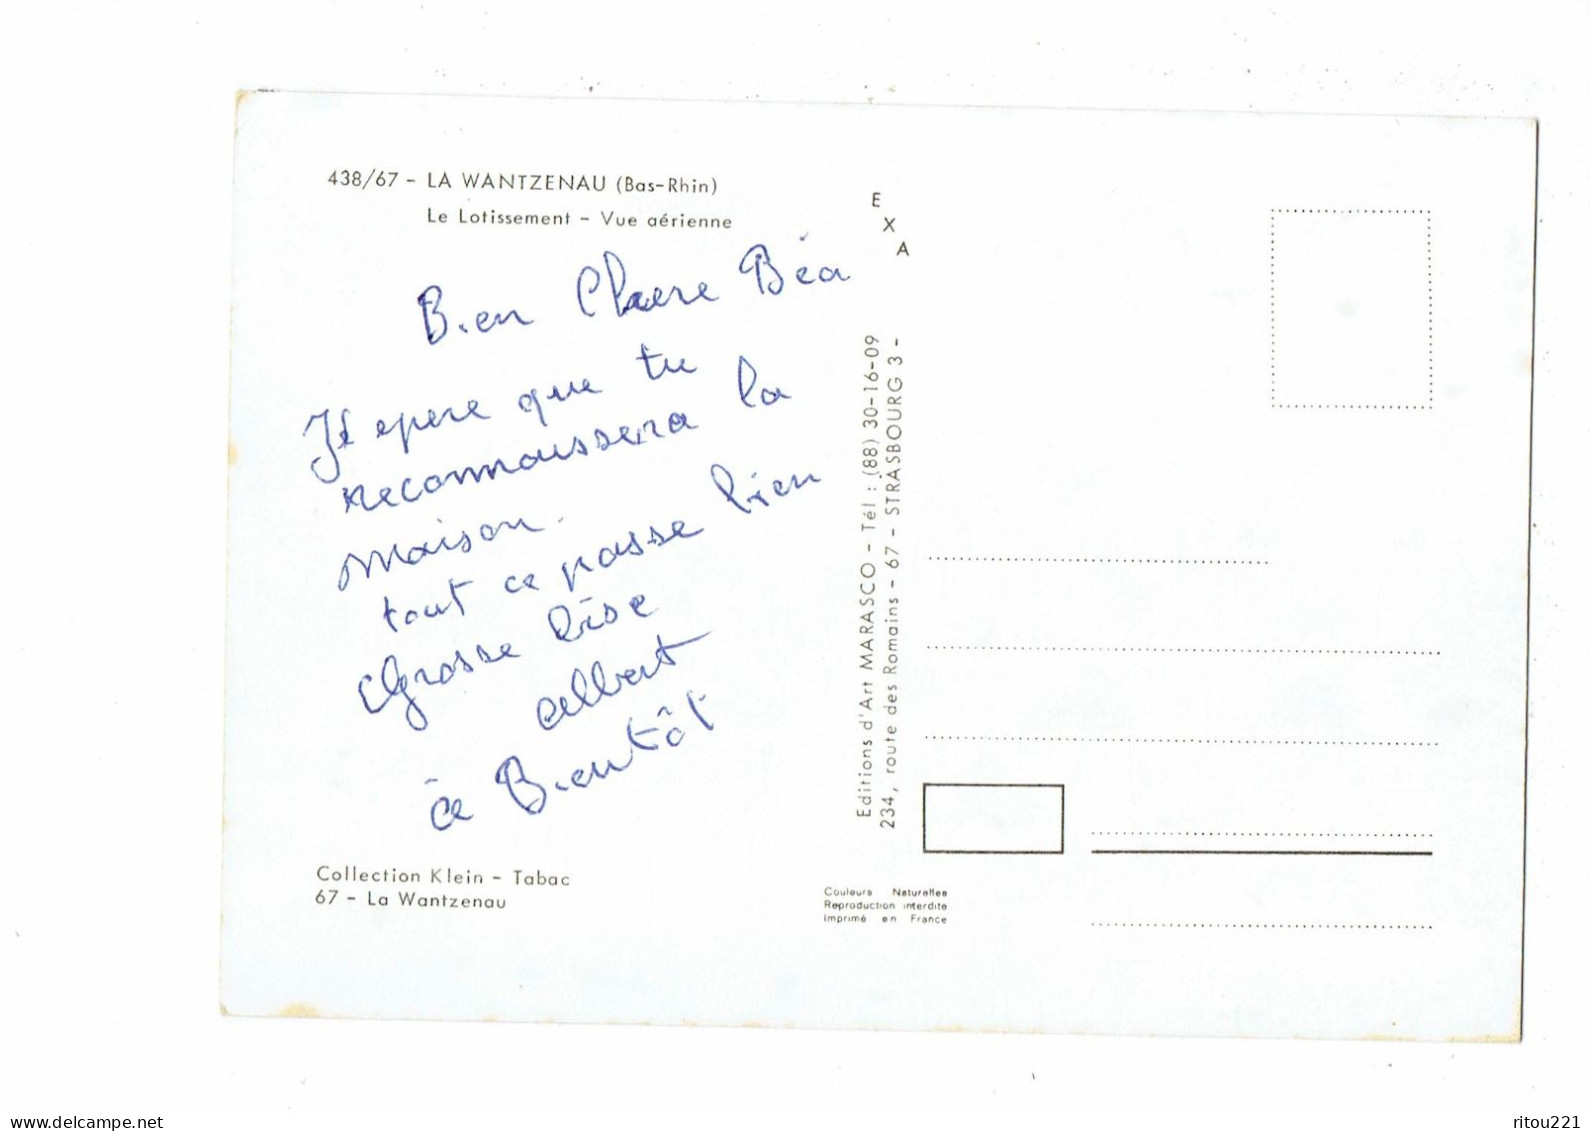 438/67 - LA WANTZENAU (Bas-Rhin)
Le Lotissement - Vue aérienne
Bien Chere Béa
J'espere que tu
reconnaissera la
maison.
tout ce passe bien
Grosse bise
Albert
à Bientôt
Collection Klein - Tabac
67 - La Wantzenau
E
X
A
Editions d'Art MARASCO - Tél : (88) 30-16-09
234, route des Romains - 67 - STRASBOURG 3 -
Couleurs Naturelles
Reproduction interdite
Imprimé en France
www.delcampe.net
ritou221